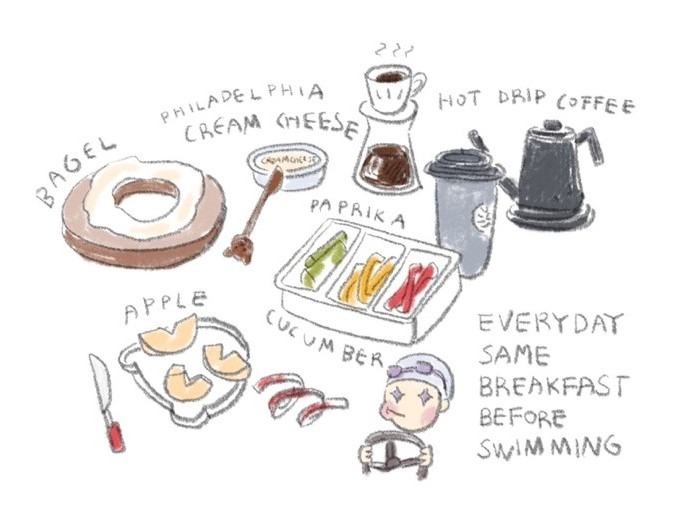 PHILADELPHIA
CREAM CHEESE
HOT DRIP COFFEE
BAGEL
CREAM CHEESE
PAPRIKA
APPLE
CUCUMBER
EVERYDAY
SAME
BREAKFAST
BEFORE
SWIMMING